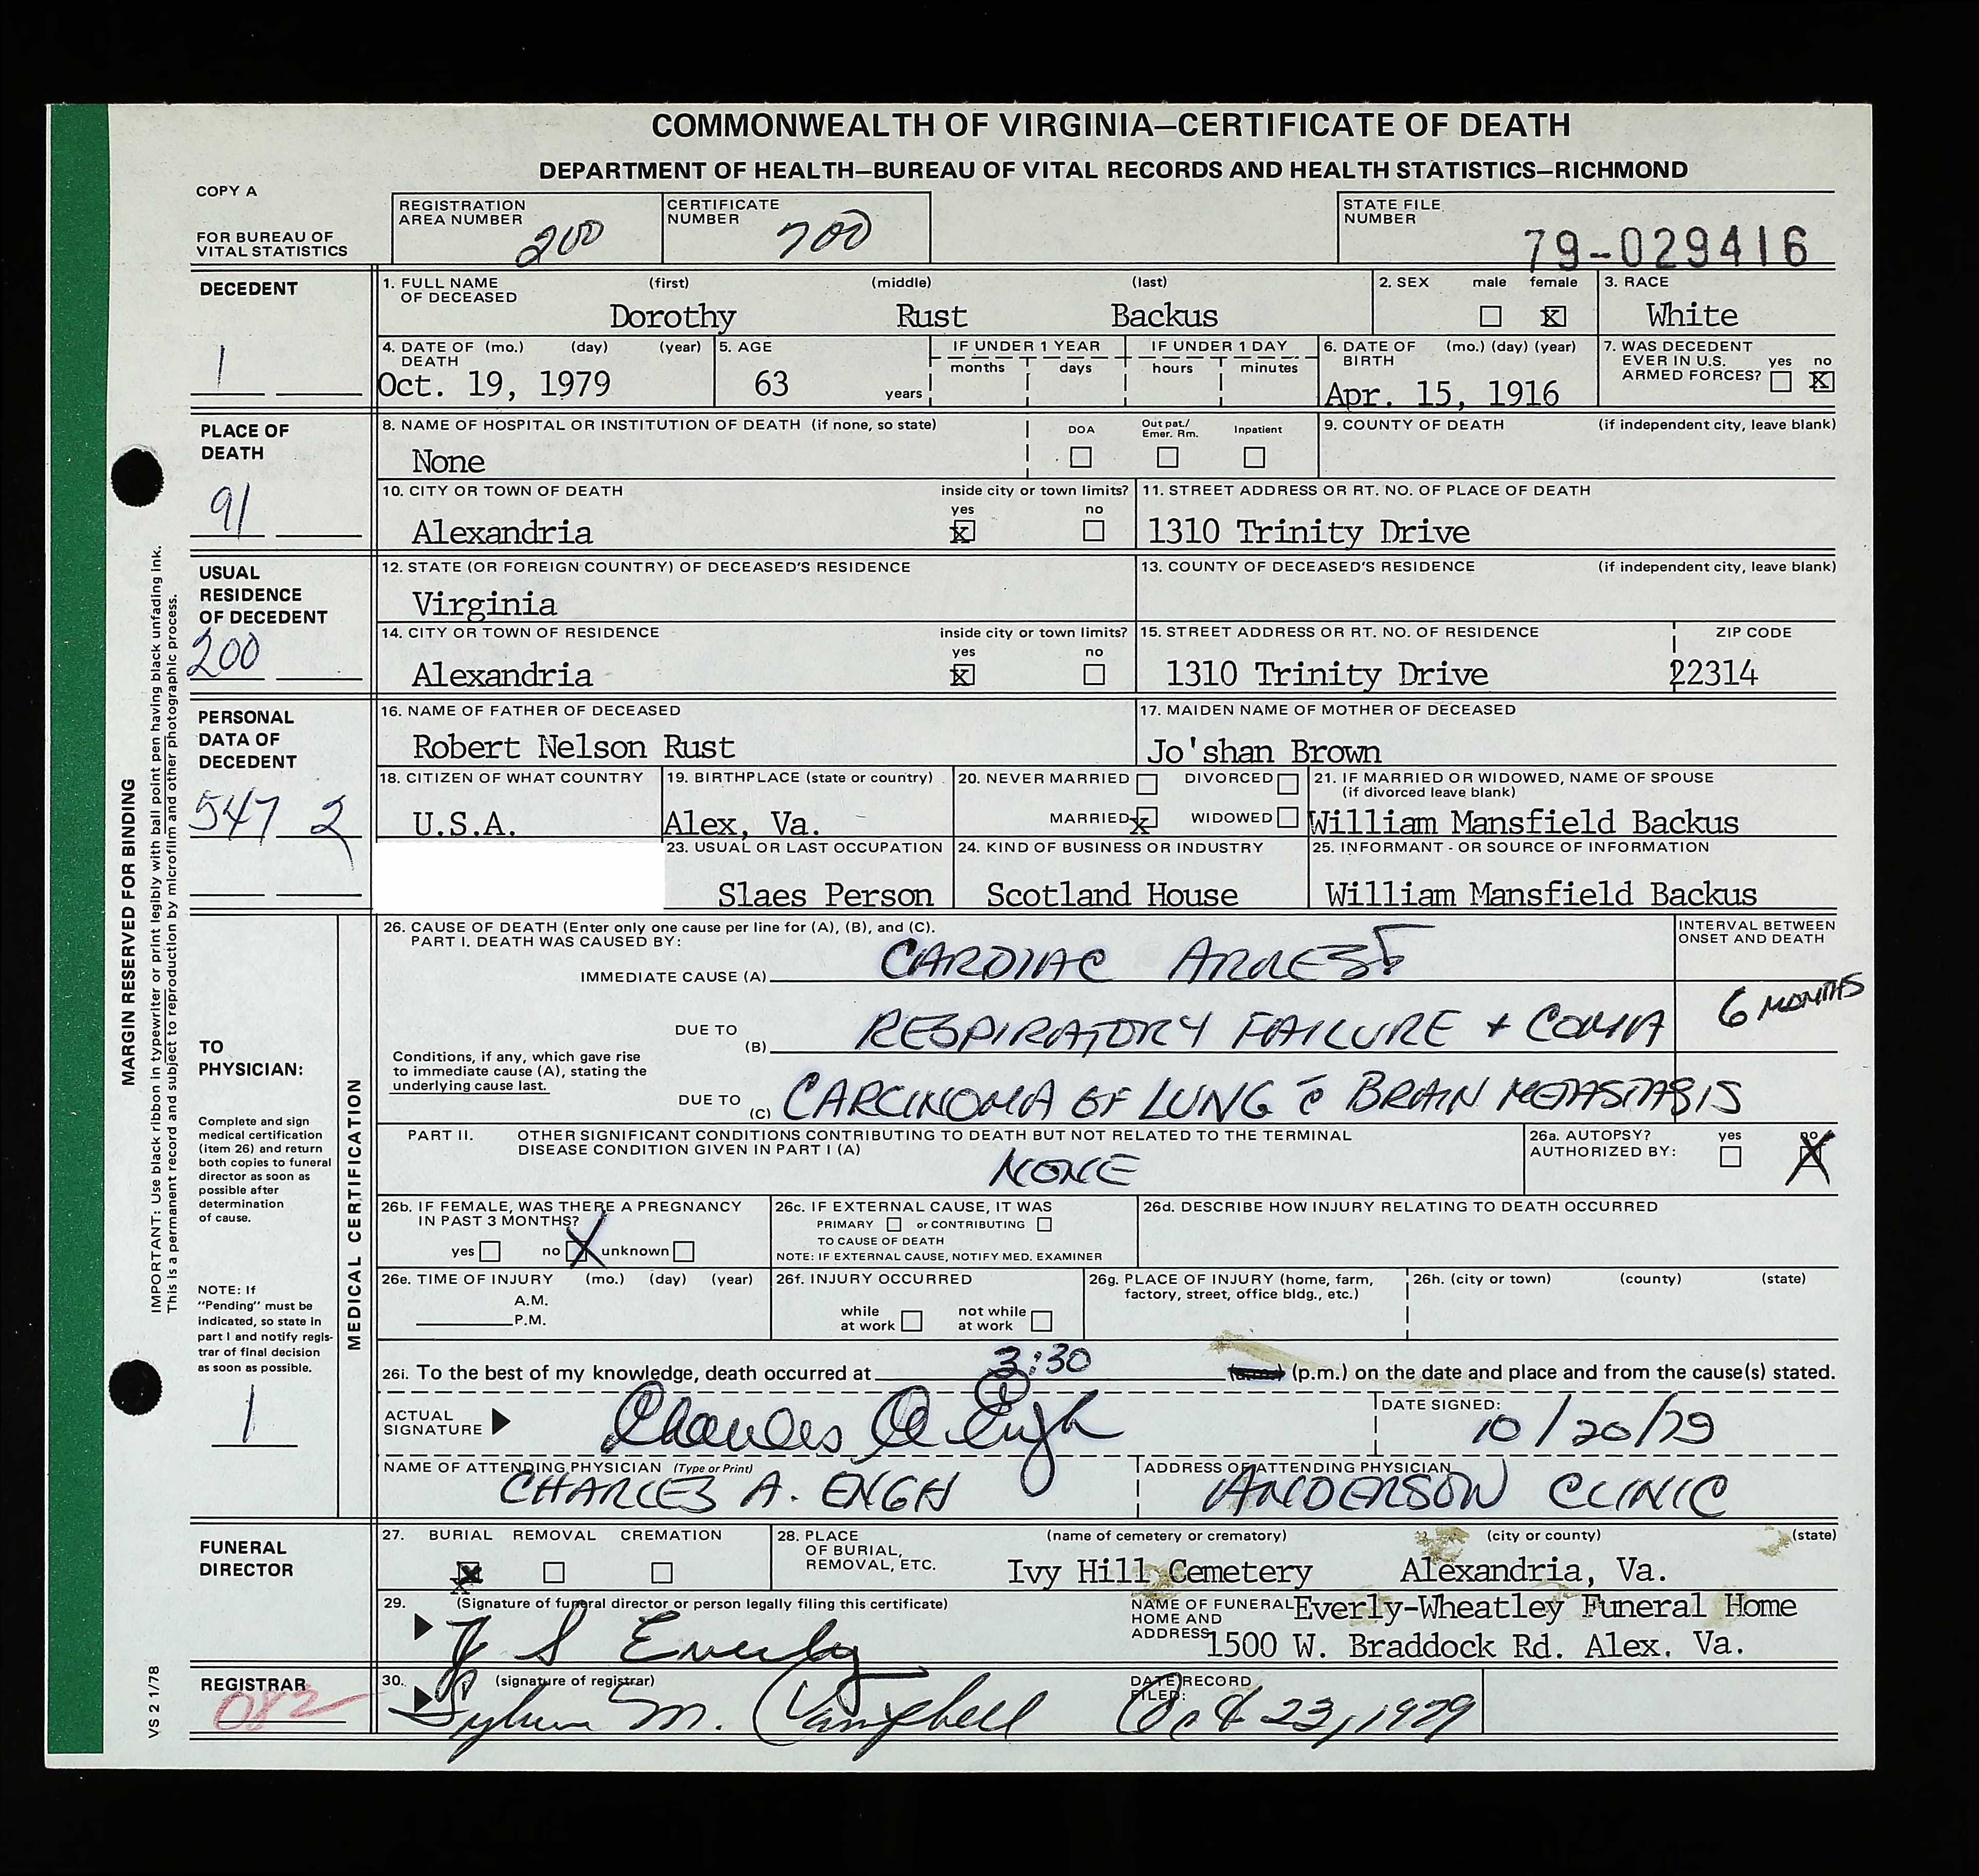 COMMONWEALTH OF VIRGINIA—CERTIFICATE OF DEATH
DEPARTMENT OF HEALTH—BUREAU OF VITAL RECORDS AND HEALTH STATISTICS—RICHMOND
COPY A
FOR BUREAU OF
VITAL STATISTICS
REGISTRATION
AREA NUMBER 200
CERTIFICATE
NUMBER 700
STATE FILE
NUMBER
79-029416
DECEDENT
1
1. FULL NAME OF DECEASED (first) (middle) (last)
Dorothy Rust Backus
2. SEX male female x
3. RACE
White
4. DATE OF DEATH (mo.) (day) (year)
Oct. 19, 1979
5. AGE
63 years
IF UNDER 1 YEAR
months days
IF UNDER 1 DAY
hours minutes
6. DATE OF BIRTH (mo.) (day) (year)
Apr. 15, 1916
7. WAS DECEDENT
EVER IN U.S.
ARMED FORCES? yes no X
PLACE OF
DEATH
91
8. NAME OF HOSPITAL OR INSTITUTION OF DEATH (if none, so state)
None
DOA Out pat./ Emer. Rm. Inpatient
9. COUNTY OF DEATH (if independent city, leave blank)
10. CITY OR TOWN OF DEATH inside city or town limits?
yes no
Alexandria x
11. STREET ADDRESS OR RT. NO. OF PLACE OF DEATH
1310 Trinity Drive
USUAL
RESIDENCE
OF DECEDENT
200
12. STATE (OR FOREIGN COUNTRY) OF DECEASED'S RESIDENCE
Virginia
13. COUNTY OF DECEASED'S RESIDENCE (if independent city, leave blank)
14. CITY OR TOWN OF RESIDENCE inside city or town limits?
yes no
Alexandria x
15. STREET ADDRESS OR RT. NO. OF RESIDENCE ZIP CODE
1310 Trinity Drive 22314
PERSONAL
DATA OF
DECEDENT
547 2
16. NAME OF FATHER OF DECEASED
Robert Nelson Rust
17. MAIDEN NAME OF MOTHER OF DECEASED
Jo'shan Brown
18. CITIZEN OF WHAT COUNTRY
U.S.A.
19. BIRTHPLACE (state or country)
Alex, Va.
20. NEVER MARRIED DIVORCED
MARRIED x WIDOWED
21. IF MARRIED OR WIDOWED, NAME OF SPOUSE
(if divorced leave blank)
William Mansfield Backus
23. USUAL OR LAST OCCUPATION
Slaes Person
24. KIND OF BUSINESS OR INDUSTRY
Scotland House
25. INFORMANT - OR SOURCE OF INFORMATION
William Mansfield Backus
MARGIN RESERVED FOR BINDING
IMPORTANT: Use black ribbon in typewriter or print legibly with ball point pen having black unfading ink.
This is a permanent record and subject to reproduction by microfilm and other photographic process.
VS 2 1/78
TO
PHYSICIAN:
Complete and sign
medical certification
(item 26) and return
both copies to funeral
director as soon as
possible after
determination
of cause.
NOTE: If
"Pending" must be
indicated, so state in
part I and notify regis-
trar of final decision
as soon as possible.
1
MEDICAL CERTIFICATION
26. CAUSE OF DEATH (Enter only one cause per line for (A), (B), and (C).
PART I. DEATH WAS CAUSED BY:
INTERVAL BETWEEN
ONSET AND DEATH
IMMEDIATE CAUSE (A) CARDIAC ARREST
6 MONTHS
DUE TO (B) RESPIRATORY FAILURE + COMA
Conditions, if any, which gave rise
to immediate cause (A), stating the
underlying cause last.
DUE TO (C) CARCINOMA OF LUNG c̄ BRAIN METASTASIS
PART II. OTHER SIGNIFICANT CONDITIONS CONTRIBUTING TO DEATH BUT NOT RELATED TO THE TERMINAL
DISEASE CONDITION GIVEN IN PART I (A)
NONE
26a. AUTOPSY? yes no X
AUTHORIZED BY:
26b. IF FEMALE, WAS THERE A PREGNANCY
IN PAST 3 MONTHS?
yes no X unknown
26c. IF EXTERNAL CAUSE, IT WAS
PRIMARY or CONTRIBUTING
TO CAUSE OF DEATH
NOTE: IF EXTERNAL CAUSE, NOTIFY MED. EXAMINER
26d. DESCRIBE HOW INJURY RELATING TO DEATH OCCURRED
26e. TIME OF INJURY (mo.) (day) (year)
A.M.
P.M.
26f. INJURY OCCURRED
while at work not while at work
26g. PLACE OF INJURY (home, farm,
factory, street, office bldg., etc.)
26h. (city or town) (county) (state)
26i. To the best of my knowledge, death occurred at 3:30 (a.m.) (p.m.) on the date and place and from the cause(s) stated.
ACTUAL
SIGNATURE Charles A Engh
DATE SIGNED:
10/20/79
NAME OF ATTENDING PHYSICIAN (Type or Print)
CHARLES A. ENGH
ADDRESS OF ATTENDING PHYSICIAN
ANDERSON CLINIC
FUNERAL
DIRECTOR
27. BURIAL REMOVAL CREMATION
x
28. PLACE
OF BURIAL,
REMOVAL, ETC.
(name of cemetery or crematory) (city or county) (state)
Ivy Hill Cemetery Alexandria, Va.
29. (Signature of funeral director or person legally filing this certificate)
S Everly
NAME OF FUNERAL
HOME AND
ADDRESS
Everly-Wheatley Funeral Home
1500 W. Braddock Rd. Alex. Va.
REGISTRAR
082
30. (signature of registrar)
M. Campbell
DATE RECORD
FILED:
Oct 23, 1979